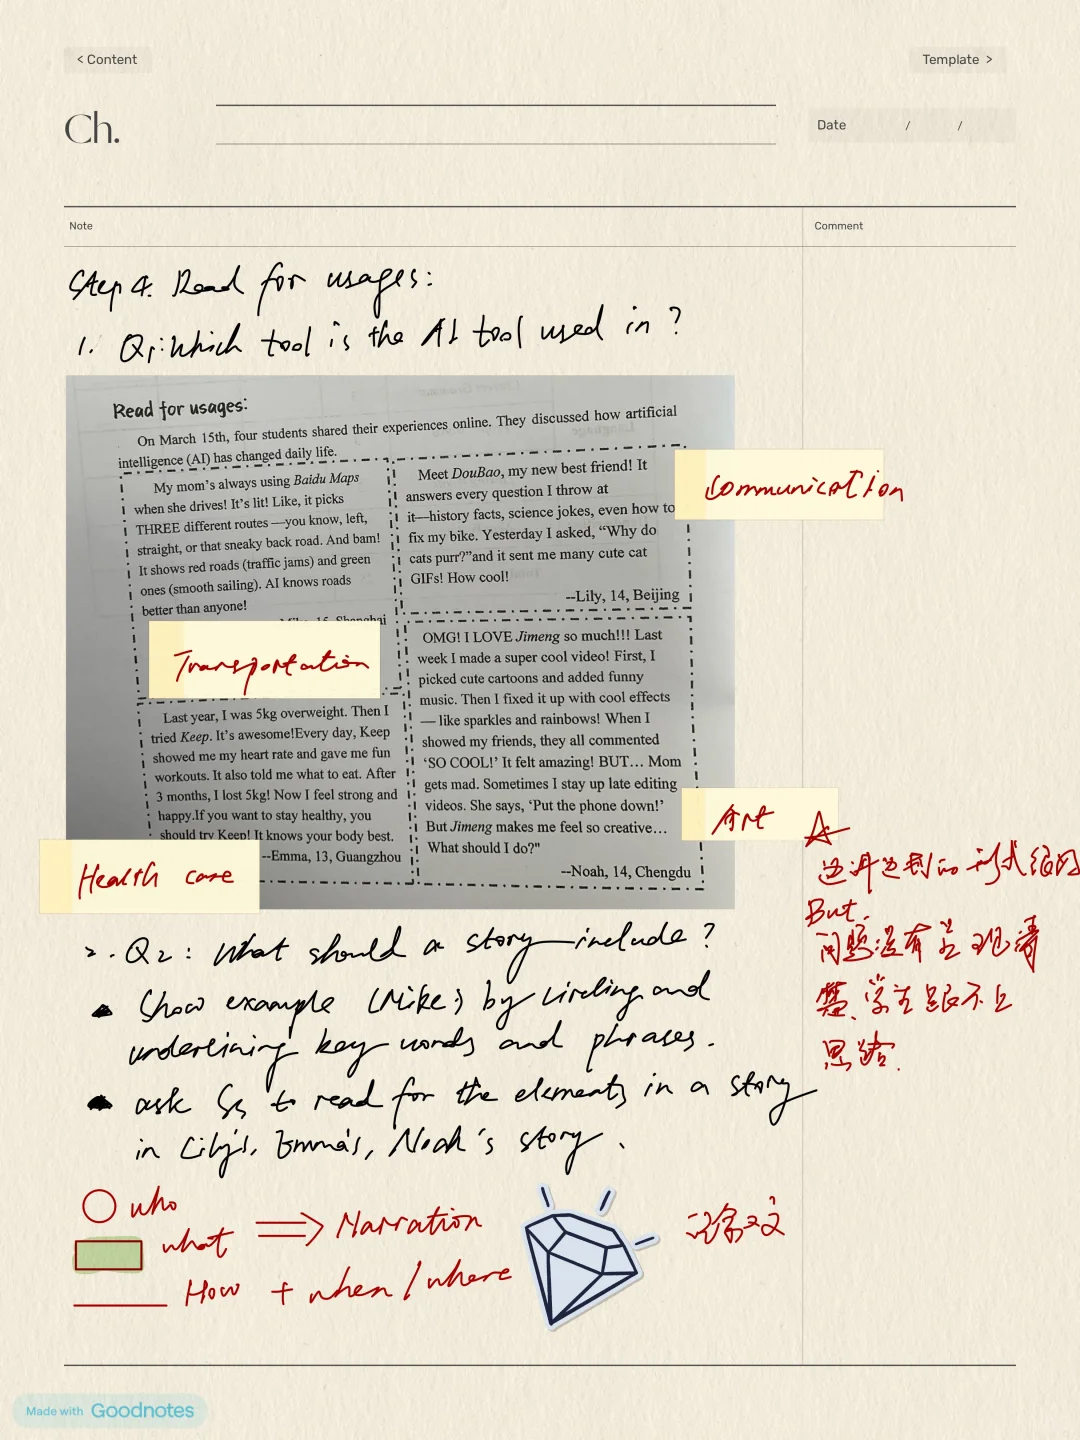 < Content
Template >
Ch.
Date / /
Note
Comment
Step 4. Read for usages:
1. Q1: Which tool is the AI tool used in ?
Read for usages:
On March 15th, four students shared their experiences online. They discussed how artificial
intelligence (AI) has changed daily life.
My mom's always using Baidu Maps
when she drives! It's lit! Like, it picks
THREE different routes —you know, left,
straight, or that sneaky back road. And bam!
It shows red roads (traffic jams) and green
ones (smooth sailing). AI knows roads
better than anyone!
Shanghai
Transportation
Meet DouBao, my new best friend! It
answers every question I throw at
it—history facts, science jokes, even how to
fix my bike. Yesterday I asked, "Why do
cats purr?"and it sent me many cute cat
GIFs! How cool!
--Lily, 14, Beijing
Communication
Last year, I was 5kg overweight. Then I
tried Keep. It's awesome!Every day, Keep
showed me my heart rate and gave me fun
workouts. It also told me what to eat. After
3 months, I lost 5kg! Now I feel strong and
happy.If you want to stay healthy, you
should try Keep! It knows your body best.
--Emma, 13, Guangzhou
Health care
OMG! I LOVE Jimeng so much!!! Last
week I made a super cool video! First, I
picked cute cartoons and added funny
music. Then I fixed it up with cool effects
— like sparkles and rainbows! When I
showed my friends, they all commented
'SO COOL!' It felt amazing! BUT… Mom
gets mad. Sometimes I stay up late editing
videos. She says, 'Put the phone down!'
But Jimeng makes me feel so creative…
What should I do?"
--Noah, 14, Chengdu
Art
边讲边划的形式很好
But.
问题没有呈现清
楚、学生跟不上
思路.
2. Q2: What should a story include ?
Show example (Mike's) by circling and
underlining key words and phrases.
ask Ss to read for the elements in a story
in Lily's, Emma's, Noah's story.
who
what
⇒ Narration
How + when / where
记叙文
Made with Goodnotes